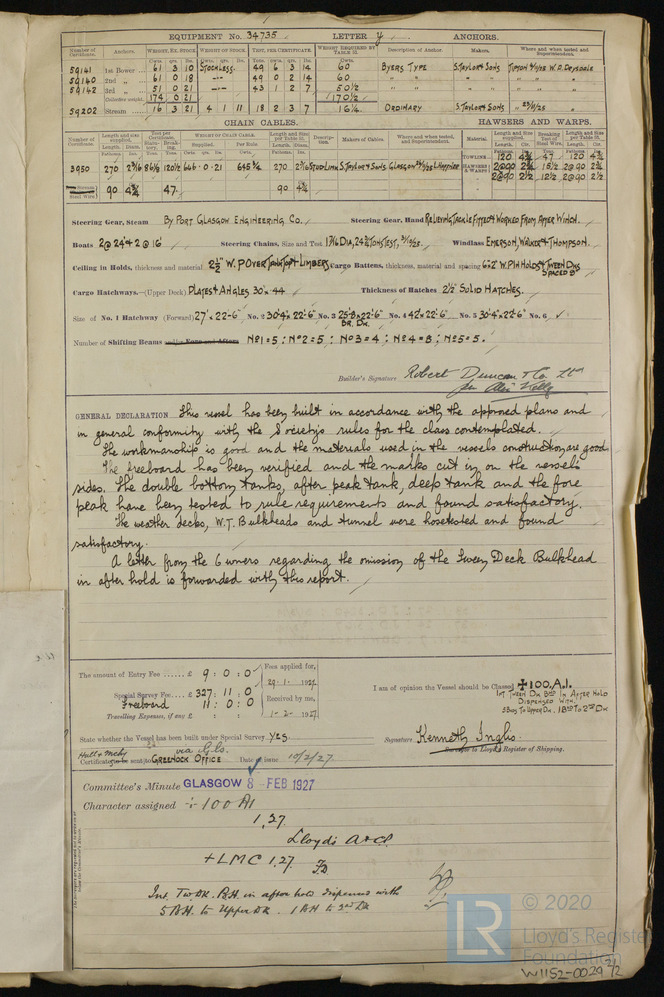 EQUIPMENT No. 34735. LETTER y ANCHORS.
Number of Certificate. Anchors. WEIGHT, EX. STOCK. WEIGHT OF STOCK. TEST, PER CERTIFICATE. WEIGHT REQUIRED BY TABLE 31. Description of Anchor. Makers. Where and when tested and Superintendent.
59141 1st Bower 61 3 10 STOCKLESS. 49 6 3 14 60 BYERS TYPE S. TAYLOR & SONS TIPTON W. D. DRYSDALE
59140 2nd „ 61 0 18 49 0 2 14 60
59142 3rd „ 51 0 21 43 1 2 7 50½
Collective weight 174 0 21 170½
59202 Stream 16 3 21 4 1 11 18 2 3 7 16¼ ORDINARY S. TAYLOR & SONS
CHAIN CABLES. HAWSERS AND WARPS.
Number of Certificate. Length and size supplied. Test per Certificate. WEIGHT OF CHAIN CABLE. Length and size per Table 31. Description. Makers of Cables. Where and when tested, and Superintendent. Material. Length and size supplied. Breaking Test of Steel Wire. Length and size per Table 31.
TOWLINE 120 4¾ 47 120 4¾
3950 270 2 3/16 86⅛ 120½ 666 . 0 . 21 645¾ 270 2 3/16 STUD LINK S. TAYLOR & SONS. GLASGOW HAWSERS & WARPS 2@90 2¾ 15½ 2@90 2¾
2@90 2½ 12½ 2@90 2½
Steel Wire 90 4¾ 47. 90 4¾
Steering Gear, Steam By PORT GLASGOW ENGINEERING CO. Steering Gear, Hand RELIEVING TACKLE FITTED & WORKED FROM AFTER WINCH.
Boats 2@24' & 2@16' Steering Chains, Size and Test 1 7/16 DIA, 24¾ TONS TEST, Windlass EMERSON, WALKER & THOMPSON.
Ceiling in Holds, thickness and material 2½" W.P OVER TANK TOP & LIMBERS Cargo Battens, thickness, material and spacing 6×2" W.P IN HOLDS & TWEEN DKS SPACED 9"
Cargo Hatchways.—(Upper Deck) PLATES & ANGLES 30" × 44 Thickness of Hatches 2½" SOLID HATCHES.
Size of No. 1 Hatchway (Forward) 27' × 22'-6" No. 2 30'-4" × 22'-6" No. 3 25'-8 × 22'-6" BR. DK. No. 4 42' × 22'-6" No. 5 30'-4" × 22'-6" No. 6
Number of Shifting Beams and/or Fore and Afters No1=5 ; No2=5 ; No3=4 ; No4=8 ; No5=5.
Builder's Signature Robert Duncan & Co. Ltd
GENERAL DECLARATION This vessel has been built in accordance with the approved plans and
in general conformity with the Society's rules for the class contemplated.
The workmanship is good and the materials used in the vessels construction are good
The freeboard has been verified and the marks cut in on the vessels
sides. The double bottom tanks, after peak tank, deep tank and the fore
peak have been tested to rule requirements and found satisfactory.
The weather decks, W.T. Bulkheads and tunnel were hosetested and found
satisfactory.
A letter from the owners regarding the omission of the tween Deck Bulkhead
in after hold is forwarded with this report.
The amount of Entry Fee £ 9 : 0 : 0 Fees applied for,
29 . 1 . 1927
Special Survey Fee £ 327 : 11 : 0
Freeboard 11 : 0 : 0 Received by me,
Travelling Expenses, if any £ 1-2-1927
I am of opinion the Vessel should be Classed ✠ 100.A.1.
INT TWEEN DK BHD IN AFTER HOLD
DISPENSED WITH,
5 BHDS TO UPPER DK, 1 BHD TO 2ND DK
State whether the Vessel has been built under Special Survey Yes.
Signature Kenneth Inglis
Surveyor to Lloyd's Register of Shipping.
Hull & Mchy via Gls.
Certificate to be sent to GREENOCK OFFICE Date of issue 10/2/27
Committee's Minute GLASGOW 8 FEB 1927
Character assigned 100 A1
1.27
Lloyd's A&CP
+ LMC 1.27.
Int. Tw. DK. B.H. in after hold dispensed with
5 B.H. to Upper DK 1 BH to 2nd DK
LR © 2020
Lloyd's Register
Foundation
W1152-0029 2/2